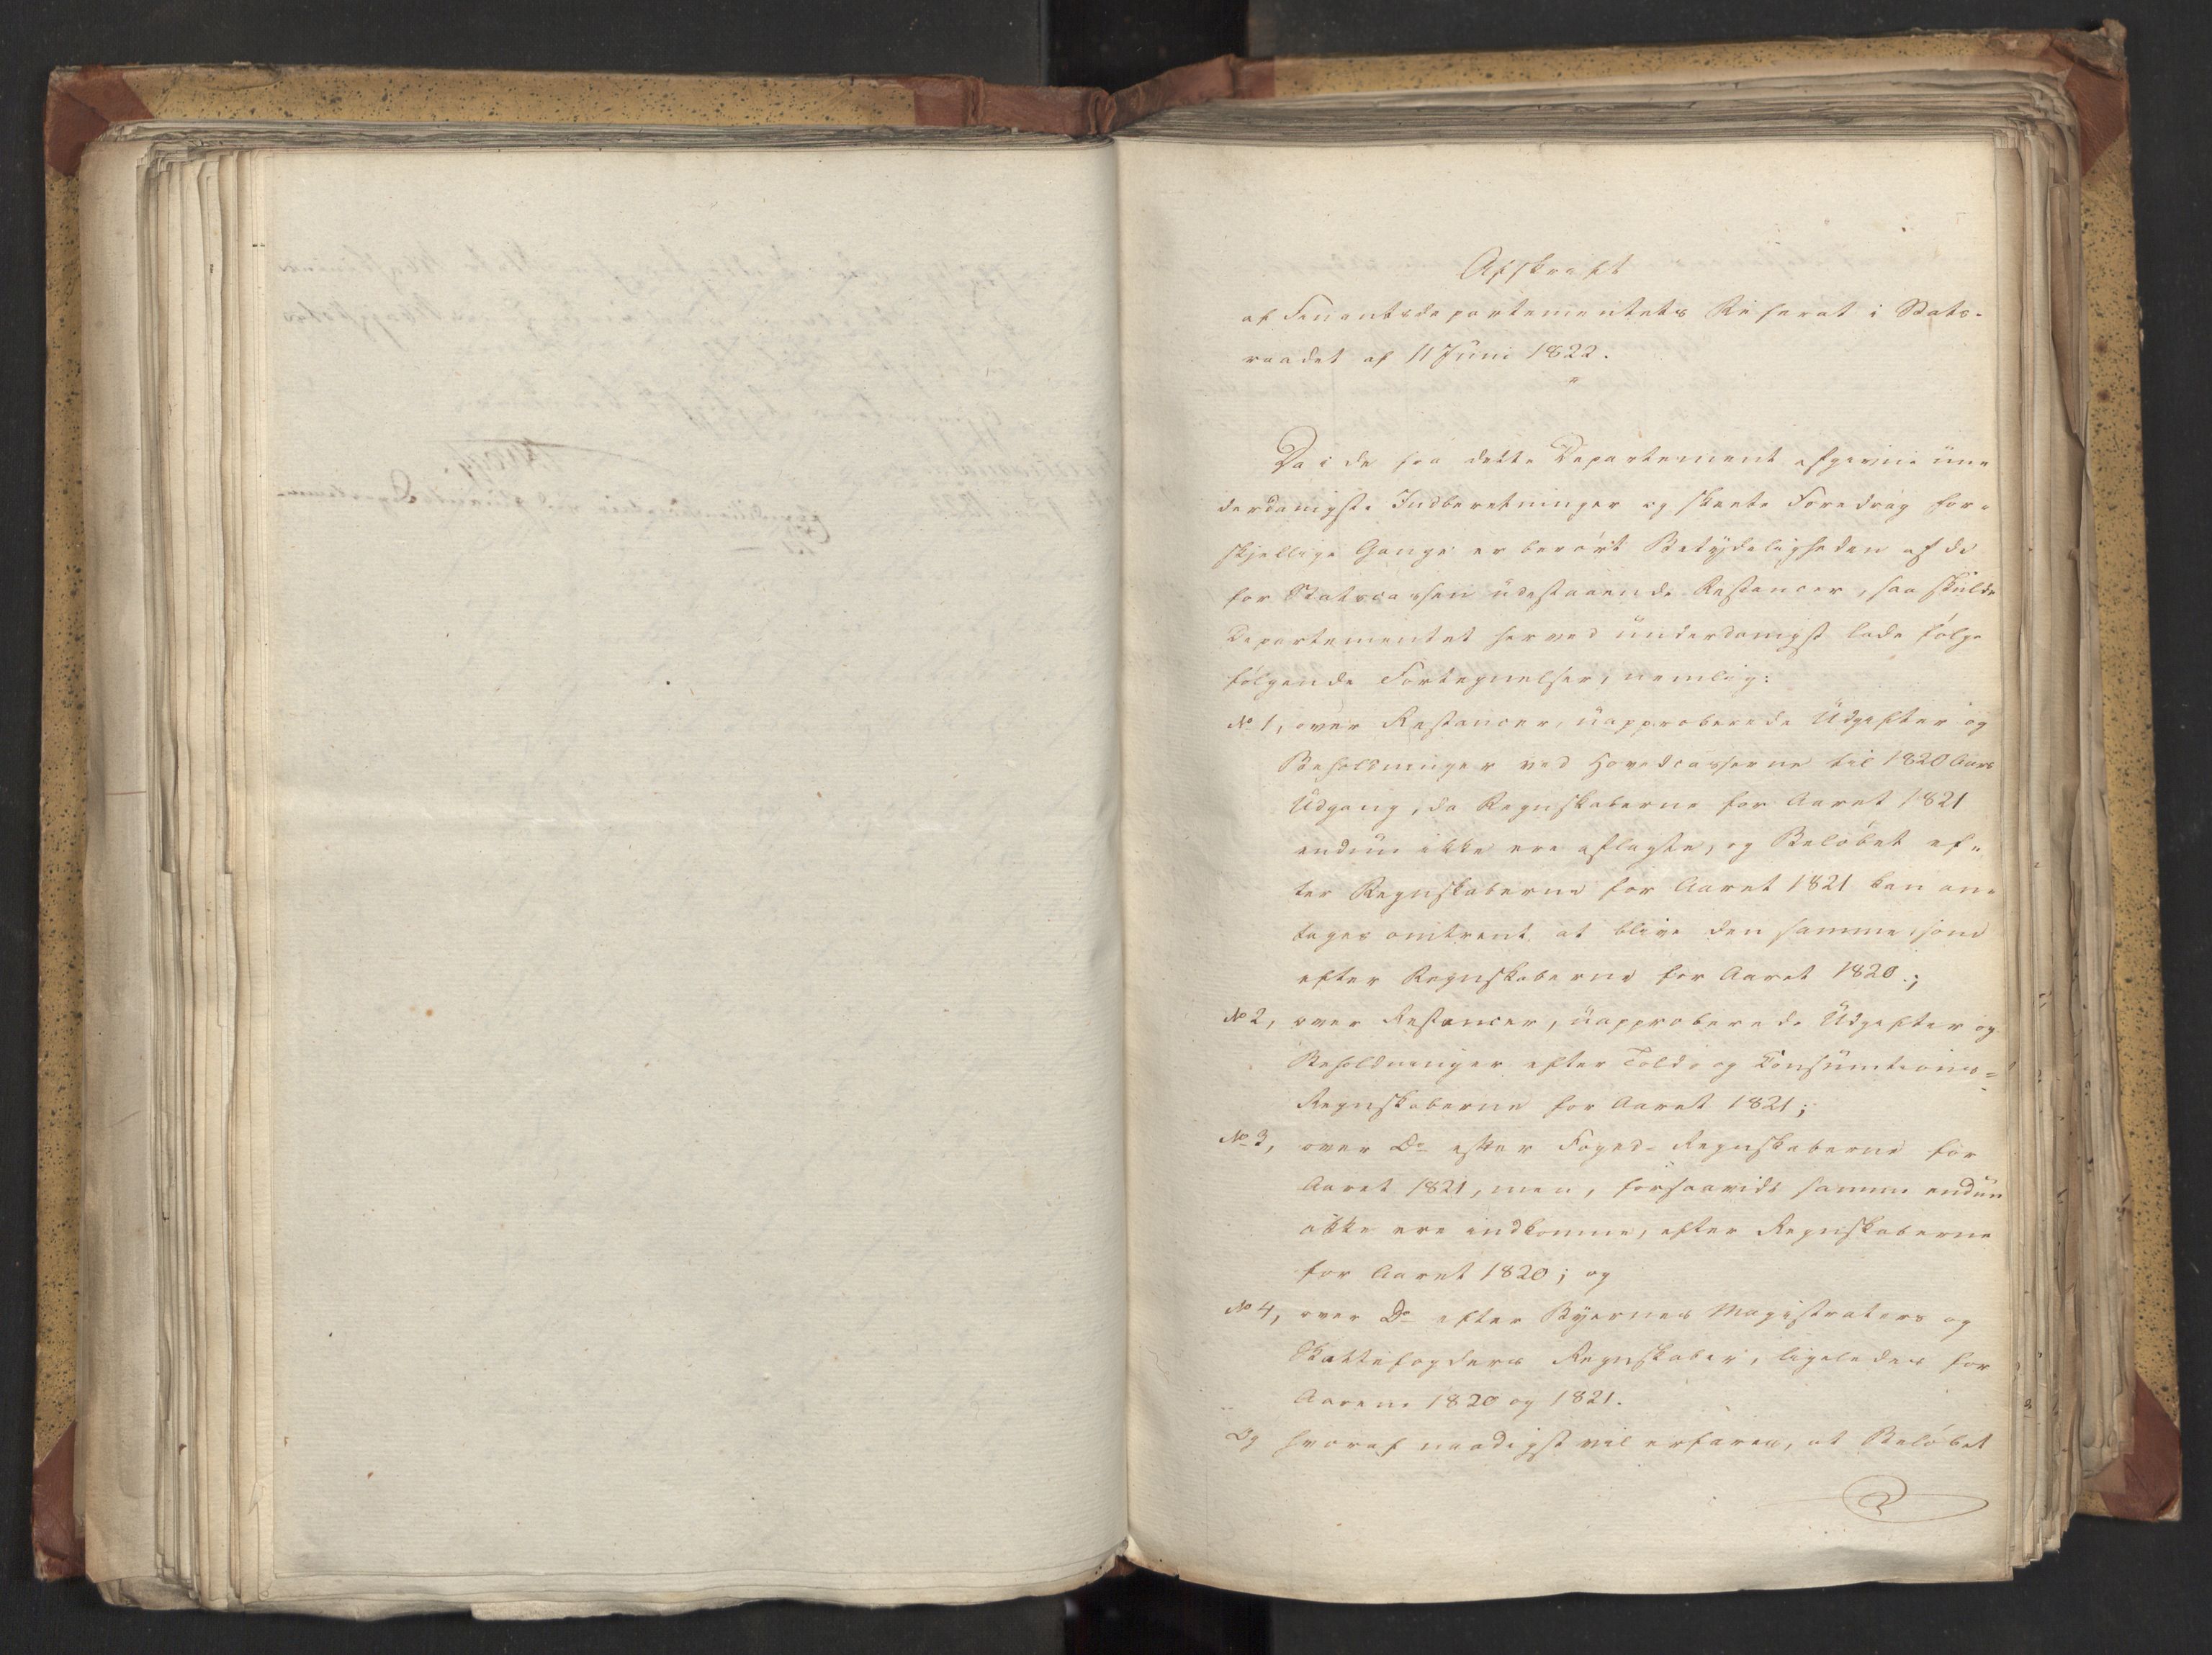 Afskrift
af Finantsdepartementets Referat i Stats-
raadet af 11 Juni 1822.
Da i de fra dette Departement afgivne un-
derdanigste Indberetninger og skeete Foredrag for-
skjellige Gange er berört Betydeligheden af de
for Statscassen udestaaende Restancer, saa skulde
Departementet herved underdanigst lade følge
følgende Fortegnelser, nemlig:
No 1, over Restancer, uapproberede Udgifter og
Beholdninger ved Hovedcasserne til 1820 Aars
Udgang, da Regnskaberne for Aaret 1821
endnu ikke ere aflagte, og Belöbet ef-
ter Regnskaberne for Aaret 1821 kan an-
tages omtrent at blive den samme som
efter Regnskaberne for Aaret 1820.;
No 2, over Restancer, uapproberede Udgifter og
Beholdninger efter Told- og Consumtions-
Regnskaberne for Aaret 1821;
No 3, over Do efter Foged-Regnskaberne for
Aaret 1821, men, forsaavidt samme endnu
ikke ere indkomne, efter Regnskaberne
for Aaret 1820; og
No 4, over Do efter Byernes Magistraters og
Skattefogders Regnskaber, ligeledes for
Aarene 1820 og 1821.
Og hvoraf naadigst vil erfares, at Belöbet